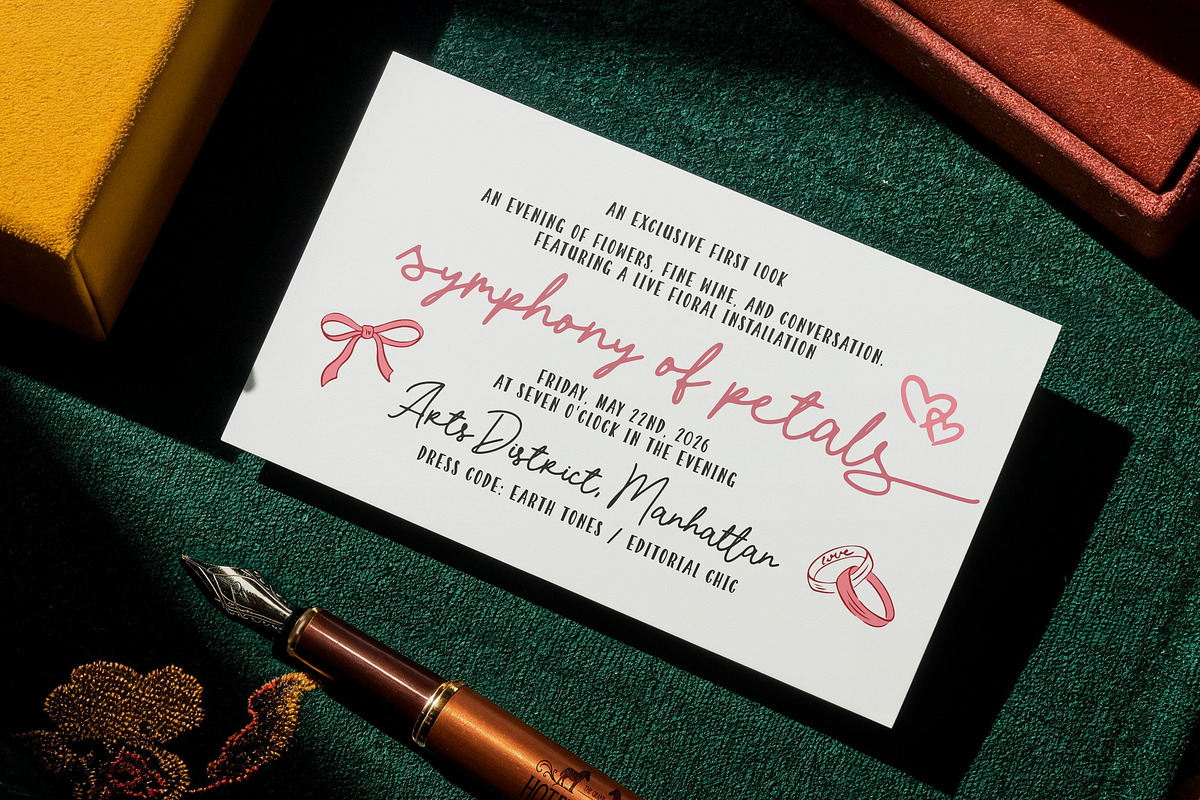 AN EXCLUSIVE FIRST LOOK
AN EVENING OF FLOWERS, FINE WINE, AND CONVERSATION.
FEATURING A LIVE FLORAL INSTALLATION
symphony of petals
FRIDAY, MAY 22ND, 2026
AT SEVEN O'CLOCK IN THE EVENING
Arts District, Manhattan
DRESS CODE: EARTH TONES / EDITORIAL CHIC
love